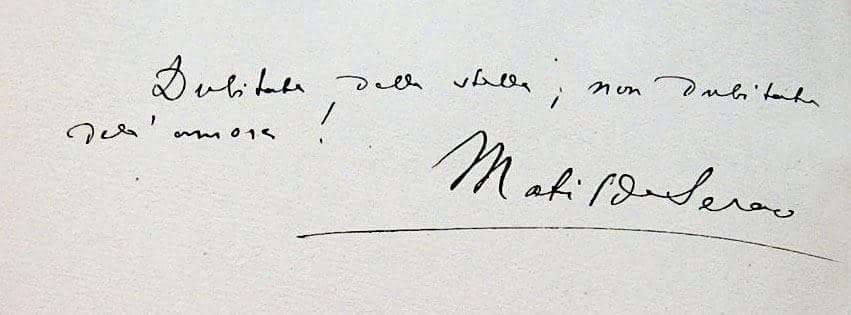 Dubitate delle stelle; non dubitate
dell'amore!
Matilde Serao